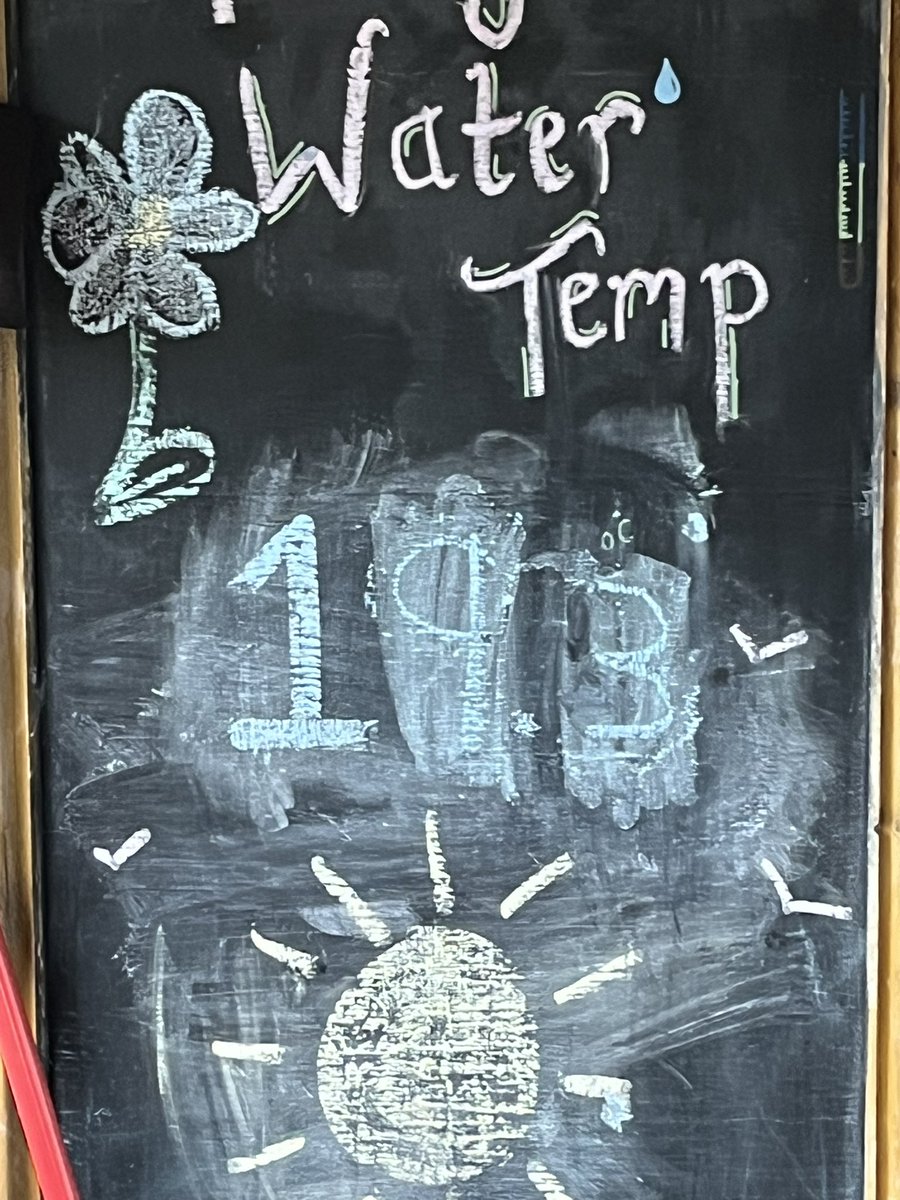 Water
Temp
19.3 °C